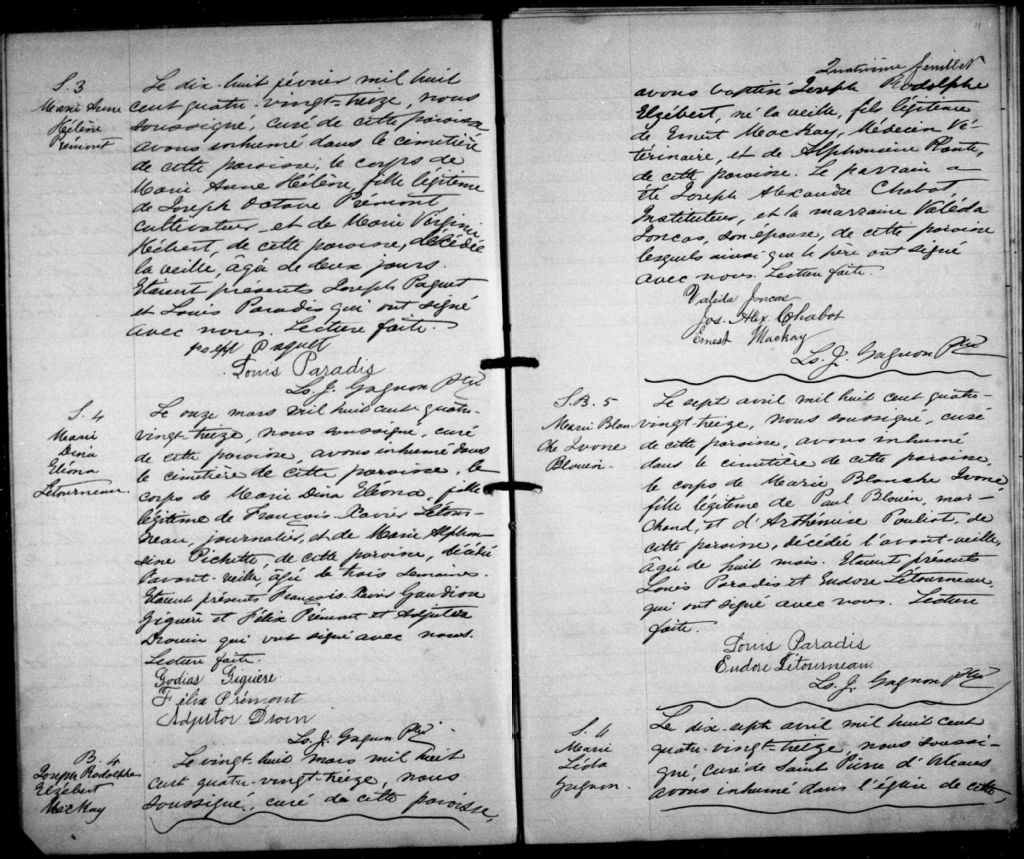 S. 3
Marie Anne
Hélène
Prémont
Le dix-huit février mil huit
cent quatre-vingt-treize, nous
soussigné, curé de cette paroisse
avons inhumé dans le cimetière
de cette paroisse, le corps de
Marie Anne Hélène, fille légitime
de Joseph Octave Prémont
cultivateur et de Marie Virginie
Hébert, de cette paroisse, décédée
la veille, âgée de deux jours.
Etaient présents Joseph Paquet
et Louis Paradis qui ont signé
avec nous. Lecture faite.
Paquet
Louis Paradis
Ls. J. Gagnon Ptre
S. 4
Marie
Dina
Eléona
Letourneau.
Le onze mars mil huit cent quatre-
vingt-treize, nous soussigné, curé
de cette paroisse, avons inhumé dans
le cimetière de cette paroisse, le
corps de Marie Dina Eléona, fille
légitime de François-Xavier Létour-
neau, journalier, et de Marie Alphon
sine Pichette, de cette paroisse, décédée
l'avant-veille, âgée de trois semaines.
Etaient présents François-Xavier Gaudiose
Giguère et Félix Prémont et Adjutor
Drouin qui ont signé avec nous.
Lecture faite.
Godias Giguère
Félix Prémont
Adjutor Droin
Ls. J. Gagnon Ptre
B. 4
Joseph Rodolphe
Elzébert
MacKay
Le vingt-huit mars mil huit
cent quatre-vingt-treize, nous
soussigné, curé de cette paroisse,
Quatrième feuillet
avons baptisé Joseph Rodolphe
Elzébert, né la veille, fils légitime
de Ernest MacKay, Médecin Vé-
térinaire, et de Alphonsine
de cette paroisse. Le parrain a
été Joseph Alexandre Chabot
Instituteur, et la marraine Valéda
Joncas, son épouse, de cette paroisse
lesquels ainsi que le père ont signé
avec nous. Lecture faite.
Valéda Joncas
Jos. Alex. Chabot
Ernest MacKay
Ls. J. Gagnon Ptre
S. B. 5
Marie Blan
che Ivone
Blouin.
Le sept avril mil huit cent quatre-
vingt-treize, nous soussigné, curé
de cette paroisse, avons inhumé
dans le cimetière de cette paroisse,
le corps de Marie Blanche Ivone,
fille légitime de Paul Blouin, mar-
chand, et d'Arthémise Pouliot, de
cette paroisse, décédée l'avant-veille,
âgée de huit mois. Etaient présents
Louis Paradis et Eudore Létourneau,
qui ont signé avec nous. Lecture
faite.
Louis Paradis
Eudore Létourneau.
Ls. J. Gagnon Ptre
S. 6
Marie
Léda
Gagnon.
Le dix-sept avril mil huit cent
quatre-vingt-treize, nous soussi-
gné, curé de Saint Pierre d'Orléans
avons inhumé dans l'église de cette